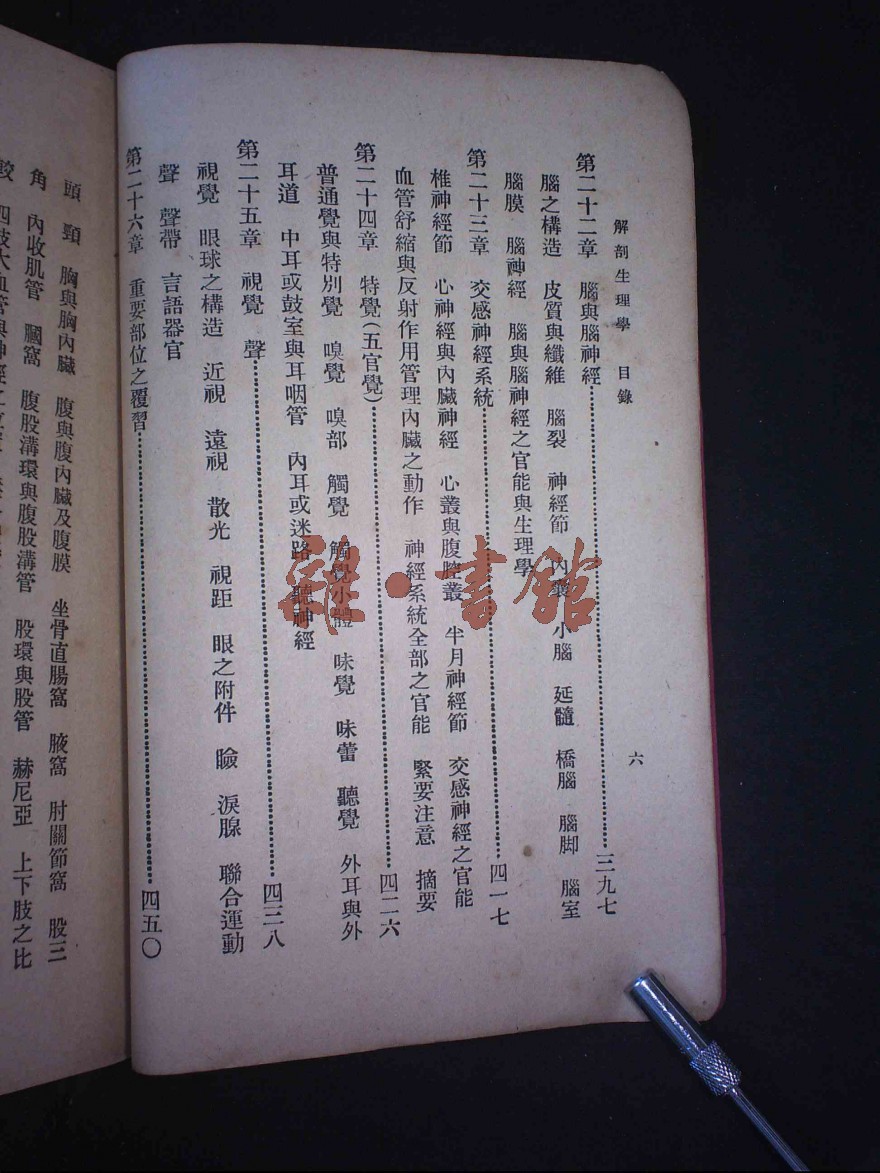 解剖生理學 目錄 六
第二十二章 腦與腦神經……三九七
腦之構造 皮質與纖維 腦裂 神經節 內囊 小腦 延髓 橋腦 腦脚 腦室
腦膜 腦神經 腦與腦神經之官能與生理學
第二十三章 交感神經系統……四一七
椎神經節 心神經與內臟神經 心叢與腹腔叢 半月神經節 交感神經之官能
血管舒縮與反射作用管理內臟之動作 神經系統全部之官能 緊要注意 摘要
第二十四章 特覺(五官覺)……四二六
普通覺與特別覺 嗅覺 嗅部 觸覺 觸覺小體 味覺 味蕾 聽覺 外耳與外
耳道 中耳或鼓室與耳咽管 內耳或迷路 聽神經
第二十五章 視覺 聲……四三八
視覺 眼球之構造 近視 遠視 散光 視距 眼之附件 瞼 淚腺 聯合運動
聲 聲帶 言語器官
第二十六章 重要部位之覆習……四五〇
頭 頸 胸與胸內臟 腹與腹內臟及腹膜 坐骨直腸窩 腋窩 肘關節窩 股三
角 內收肌管 膕窩 腹股溝環與腹股溝管 股環與股管 赫尼亞 上下肢之比
較 四肢大血管與神經之
雜·書館